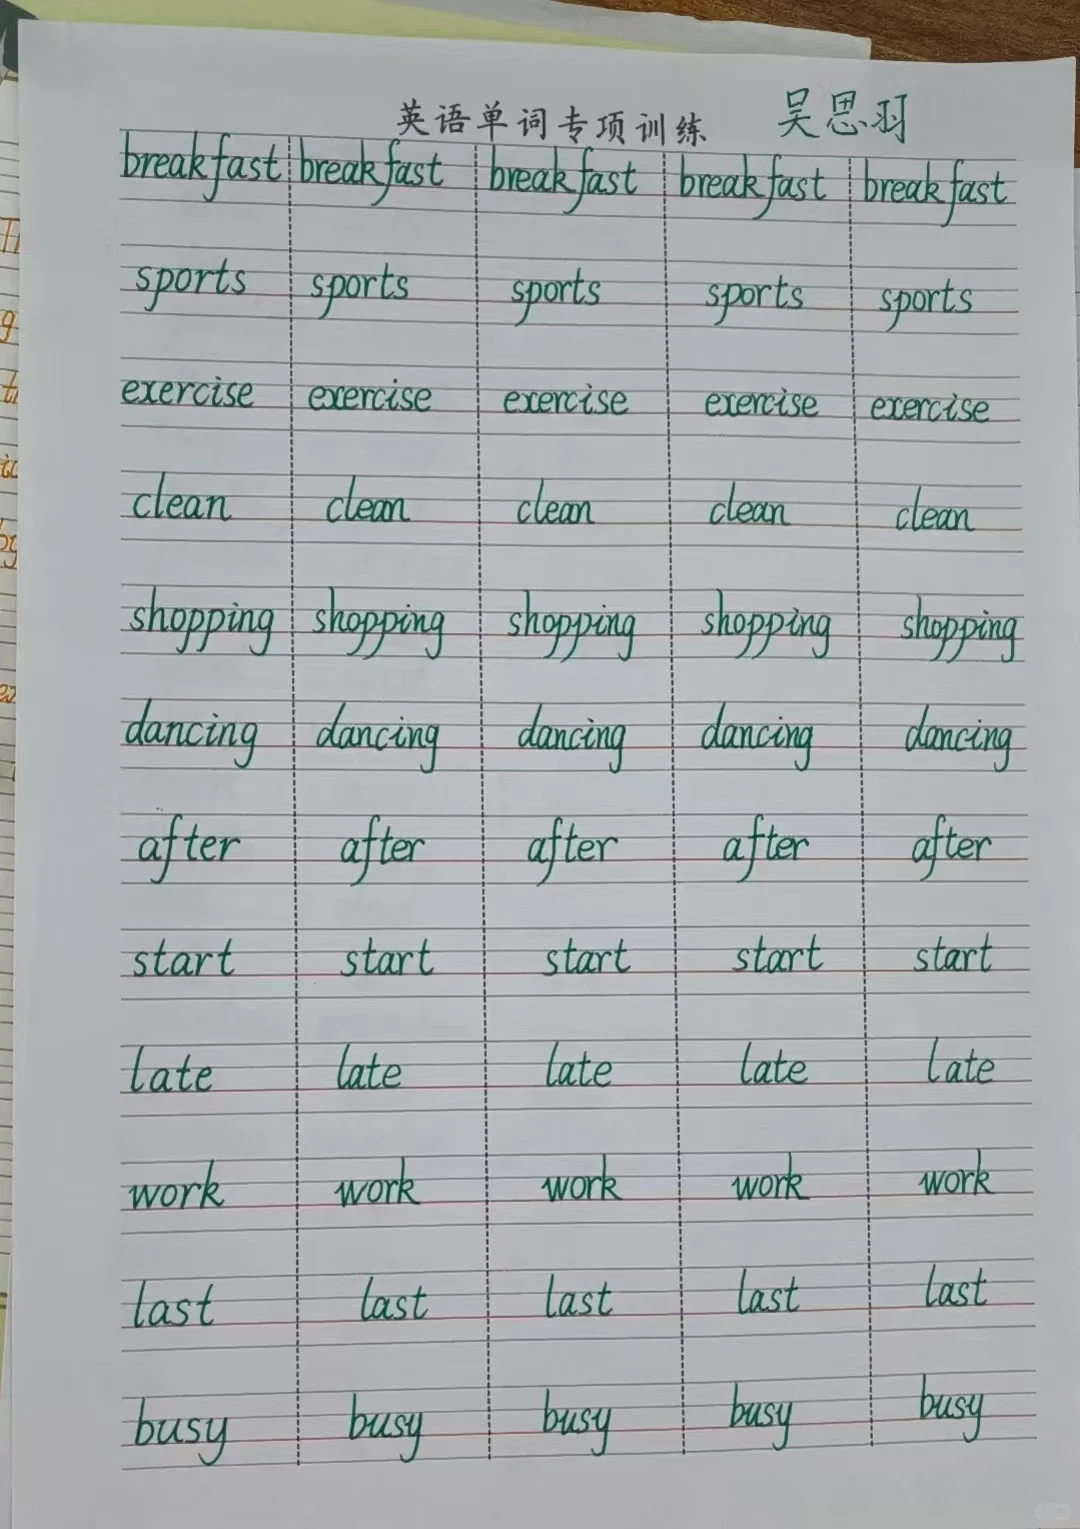 英语单词专项训练 吴思羽
breakfast breakfast breakfast breakfast breakfast
sports sports sports sports sports
exercise exercise exercise exercise exercise
clean clean clean clean clean
shopping shopping shopping shopping shopping
dancing dancing dancing dancing dancing
after after after after after
start start start start start
late late late late late
work work work work work
last last last last last
busy busy busy busy busy